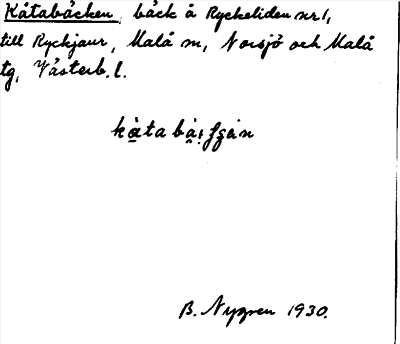 Kåtabäcken, bäck å Ryckeliden nr 1,
till Ryckjaur, Malå sn, Norsjö och Malå
tg, Västerb. l.
B. Nygren 1930.